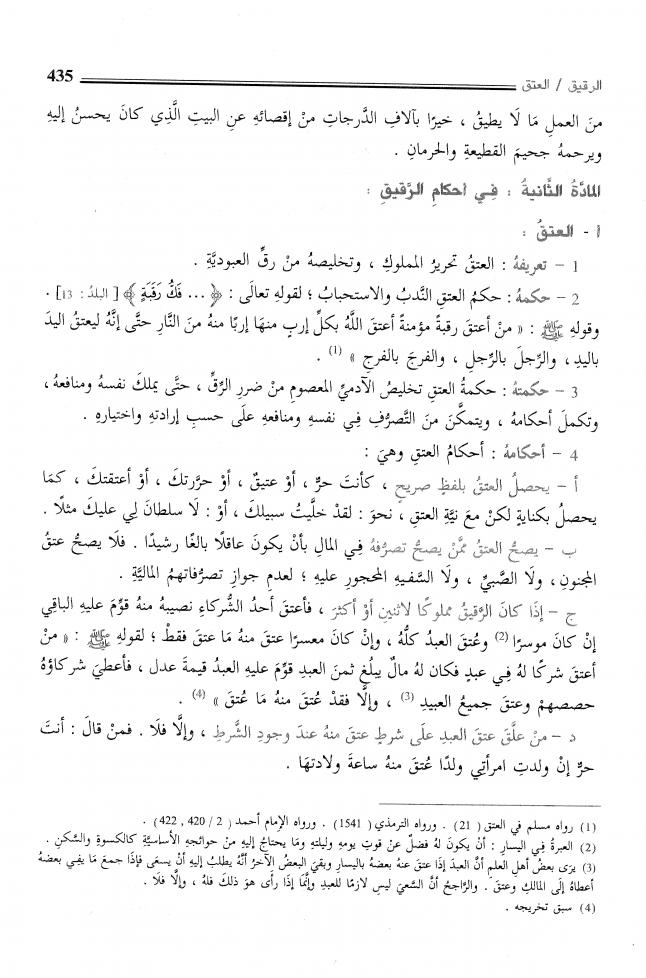 الرقيق / العتق 435
منَ العملِ مَا لَا يطيقُ ، خيرًا بآلافِ الدَّرجاتِ منْ إقصائهِ عنِ البيتِ الَّذِي كانَ يحسنُ إليهِ
ويرحمهُ جحيمَ القطيعةِ والحرمانِ .
المادَّةُ الثَّانيةُ : فِي أحكامِ الرَّقيقِ :
أ - العتقُ :
1 - تعريفهُ : العتقُ تحريرُ المملوكِ ، وتخليصهُ منْ رقِّ العبوديَّةِ .
2 - حكمهُ : حكمُ العتقِ النَّدبُ والاستحبابُ ؛ لقولهِ تعالَى : ﴿ ... فَكُّ رَقَبَةٍ ﴾ [ البلدُ : 13] .
وقولهِ ﷺ : « منْ أعتقَ رقبةً مؤمنةً أعتقَ اللَّهُ بكلِّ إربٍ منهَا إربًا منهُ منَ النَّارِ حتَّى إنَّهُ ليعتقُ اليدَ
باليدِ ، والرِّجلَ بالرِّجلِ ، والفرجَ بالفرجِ » (1) .
3 - حكمتهُ : حكمةُ العتقِ تخليصُ الآدميِّ المعصومِ منْ ضررِ الرِّقِّ ، حتَّى يملكَ نفسهُ ومنافعهُ ،
وتكملَ أحكامهُ ، ويتمكَّنَ منَ التَّصرُّفِ فِي نفسهِ ومنافعهِ علَى حسبِ إرادتهِ واختيارهِ .
4 - أحكامهُ : أحكامُ العتقِ وهيَ :
أ - يحصلُ العتقُ بلفظٍ صريحٍ ، كأنتَ حرٌّ ، أوْ عتيقٌ ، أوْ حرَّرتكَ ، أوْ أعتقتكَ ، كمَا
يحصلُ بكنايةٍ لكنْ معَ نيَّةِ العتقِ ، نحوَ : لقدْ خلَّيتُ سبيلكَ ، أوْ : لَا سلطانَ لِي عليكَ مثلًا .
ب - يصحُّ العتقُ ممَّنْ يصحُّ تصرُّفهُ فِي المالِ بأنْ يكونَ عاقلًا بالغًا رشيدًا . فلَا يصحُّ عتقُ
المجنونِ ، ولَا الصَّبيِّ ، ولَا السَّفيهِ المحجورِ عليهِ ؛ لعدمِ جوازِ تصرُّفاتهمُ الماليَّةِ .
ج - إذَا كانَ الرَّقيقُ مملوكًا لاثنينِ أوْ أكثرَ ، فأعتقَ أحدُ الشُّركاءِ نصيبهُ منهُ قوِّمَ عليهِ الباقِي
إنْ كانَ موسرًا (2) وعُتقَ العبدُ كلُّهُ ، وإنْ كانَ معسرًا عتقَ منهُ مَا عتقَ فقطْ ؛ لقولهِ ﷺ : « منْ
أعتقَ شركًا لهُ فِي عبدٍ فكانَ لهُ مالٌ يبلُغُ ثمنَ العبدِ قوِّمَ عليهِ العبدُ قيمةَ عدلٍ ، فأعطيَ شركاؤهُ
حصصهمْ وعتقَ جميعُ العبيدِ (3) ، وإلَّا فقدْ عُتقَ منهُ مَا عُتقَ » (4) .
د - منْ علَّقَ عتقَ العبدِ علَى شرطٍ عتقَ منهُ عندَ وجودِ الشَّرطِ ، وإلَّا فلَا . فمنْ قالَ : أنتَ
حرٌّ إنْ ولدتِ امرأتِي ولدًا عُتقَ منهُ ساعةَ ولادتهَا .
(1) رواه مسلم في العتق ( 21 ) . ورواه الترمذي ( 1541 ) . ورواه الإمام أحمد ( 2 / 420 , 422 ) .
(2) العبرةُ فِي اليسارِ : أنْ يكونَ لهُ فضلٌ عنْ قوتِ يومهِ وليلتهِ ومَا يحتاجُ إليهِ منْ حوائجهِ الأساسيَّةِ كالكسوةِ والسَّكنِ .
(3) يرَى بعضُ أهلِ العلمِ أنَّ العبدَ إذَا عتقَ عنهُ بعضهُ باليسارِ وبقيَ البعضُ الآخرُ أنَّهُ يطلبُ إليهِ أنْ يسعَى فإذَا جمعَ مَا يفِي بعضهُ
أعطاهُ إلَى المالكِ وعتقَ . والرَّاجحُ أنَّ السَّعيَ ليسَ لازمًا للعبدِ وإنَّمَا إذَا رأَى هوَ ذلكَ فلهُ ، وإلَّا فلَا .
(4) سبق تخريجه .